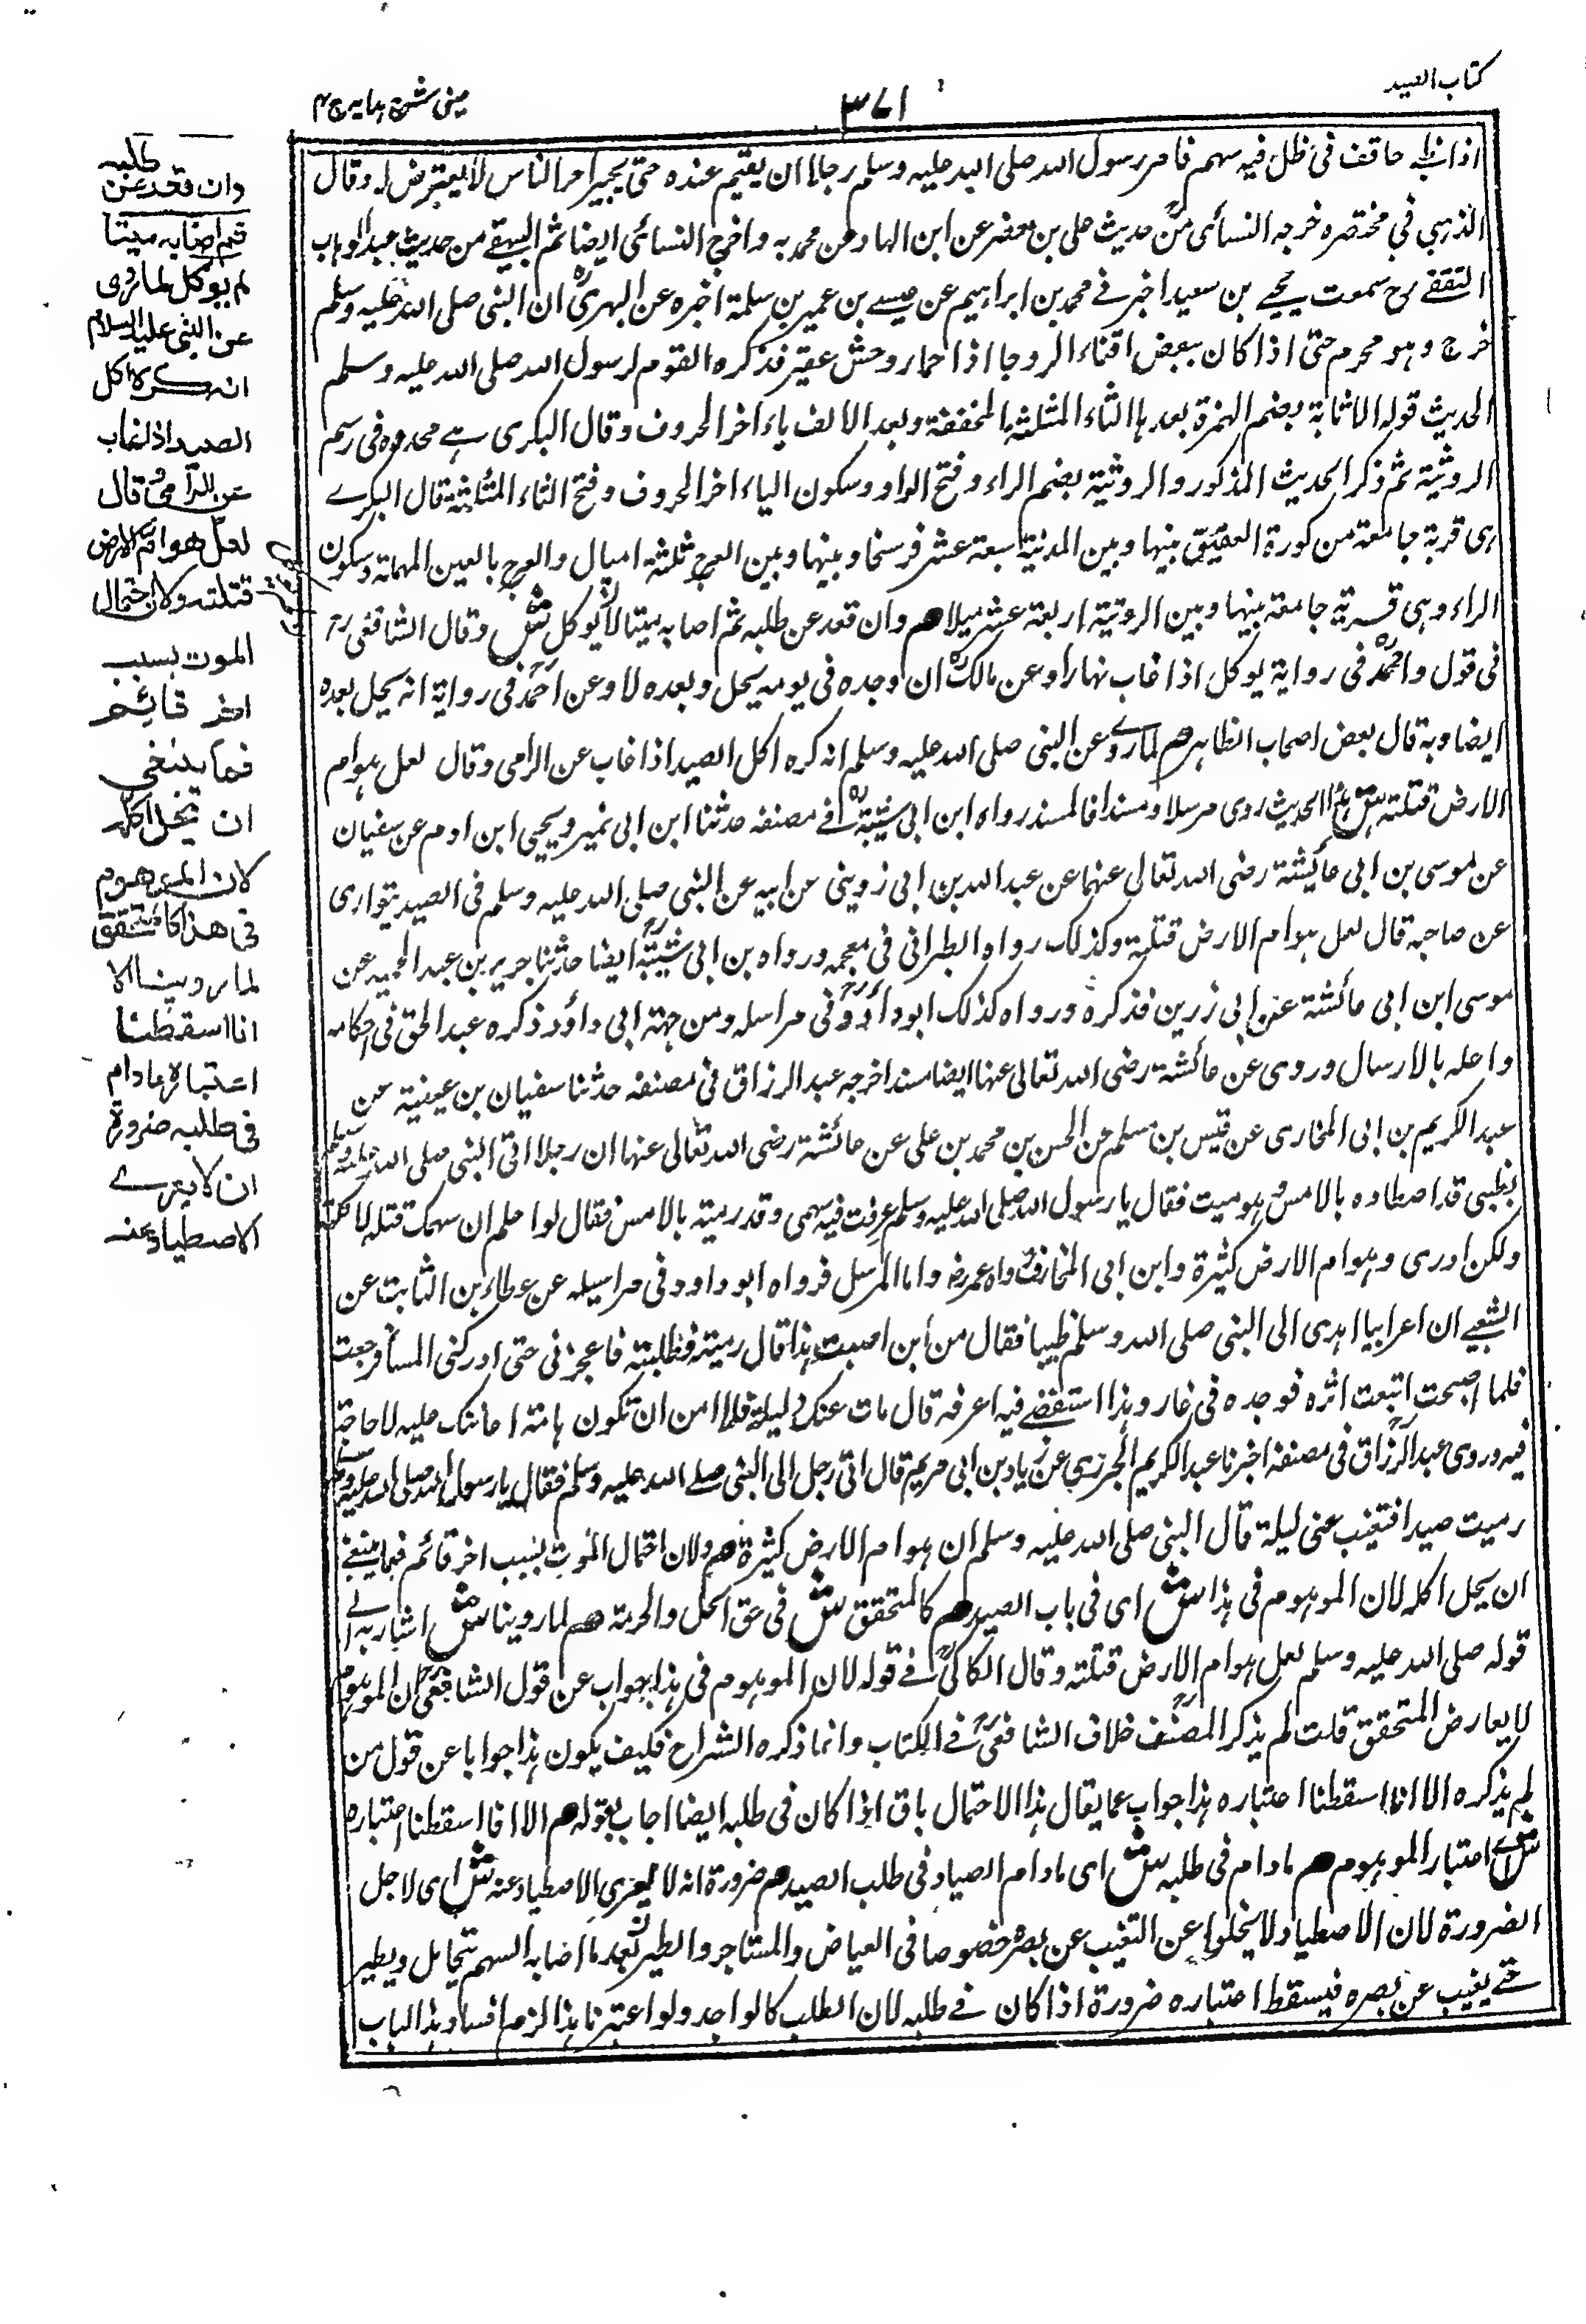 كتاب الصيد
٣٧١
عينى شرح هدايه ج ٤
اذا ظبى حاقف فى ظل فيه سهم فامر رسول الله صلى الله عليه وسلم رجلا ان يقيم عنده حتى يجيز اخر الناس لا يعترض له وقال
الذهبى فى مختصره خرجه النسائى من حديث على بن معضر عن ابن الهاد عن محمد به واخرج النسائى ايضا ثم البيهقے من حديث عبد الوهاب
الثقفے رح سمعت يحيے بن سعيد اخبرنے محمد بن ابراهيم عن عيسے بن عمير بن سلمة اخبره عن البهزى ان النبى صلى الله عليه وسلم
خرج وهو محرم حتى اذا كان ببعض افناء الروحا اذا حمار وحش عقير فذكره القوم لرسول الله صلى الله عليه وسلم
الحديث قوله الاثابة وبضم الهمزة بعدها الثاء المثلثة المخففة وبعد الالف ياء اخر الحروف وقال البكرى هے محدوه فى رسم
الروثية ثم ذكر الحديث المذكور والروثية بضم الراء وفتح الواو وسكون الياء اخر الحروف وفتح الثاء المثلثة قال البكرے
هى قرية جامعة من كورة العقيق بينها وبين المدينة سبعة عشر فرسخا وبينها وبين العرج ثلثة اميال والعرج بالعين المهملة وسكون
الراء وهى قرية جامعة بينها وبين الروثية اربعة عشر ميلا هم وان قعد عن طلبه ثم اصابه ميتا لا يؤكل ش وقال الشافعى رح
فى قول واحمد فى رواية يوكل اذا غاب نهارا وعن مالك ان وجده فى يومه يحل وبعده لا وعن احمد فى رواية انه يحل بعده
ايضا وبه قال بعض اصحاب الظاهر هم لما روے عن النبى صلى الله عليه وسلم انه كره اكل الصيد اذا غاب عن الرامى وقال لعل هوام
الارض قتلته ش هذا الحديث روى مرسلا ومسندا فالمسند رواه ابن ابى شيبة فے مصنفه حدثنا ابن ابى نمير ويحيى ابن ادم عن سفيان
عن موسى بن ابى عائيشة رضى الله تعالى عنهما عن عبد الله بن ابى زوينى عن ابيه عن النبى صلى الله عليه وسلم فى الصيد يتوارى
عن صاحبه قال لعل هوام الارض قتلته وكذلك رواه الطبرانى فى معجمه ورواه بن ابى شيبة ايضا حدثنا جرير بن عبد الحميد عن
موسى ابن ابى عائشة عن ابى زرين فذكره ورواه كذلك ابوداؤد فى مراسله ومن جهة ابى داؤد ذكره عبد الحق فى احكامه
واعله بالارسال وروى عن عائشة رضى الله تعالى عنها ايضا مسندا اخرجه عبد الرزاق فى مصنفه حدثنا سفيان بن عيينة عن
عبد الكريم بن ابى المخارى عن قيس بن مسلم عن الحسن بن محمد بن على عن عائشة رضى الله تعالى عنها ان رجلا اتى النبى صلى الله عليه وسلم
بظبى قد اصطاده بالامس وهو ميت فقال يا رسول الله صلى الله عليه وسلم عرفت فيه سهمى وقد رميته بالامس فقال لو اعلم ان سهمك قتله لاكلته
ولكن ادرى وهوام الارض كثيرة وابن ابى المخارق واه عمرضه واما المرسل فرواه ابو داود فى مراسيله عن عطاء بن الثابت عن
الشعبے ان اعرابيا اهدى الى النبى صلى الله وسلم ظبيا فقال من اين اصبت هذا قال رميته فطلبته فاعجزنى حتى ادركنى المساء فرجعت
فلما اصبحت اتبعت اثره فوجده فى غار وهذا استقضے فيه اعرفه قال مات عنك ليلة فلا امن ان تكون هامة اعانتك عليه لا حاجة
فيه وروى عبد الرزاق فى مصنفه اخبرنا عبد الكريم الجزرى عن زياد بن ابى مريم قال اتى رجل الى النبى صلے الله عليه وسلم فقال يا رسول الله صلى الله عليه وسلم
رميت صيدا فتغيب عنى ليلة قال النبى صلى الله عليه وسلم ان هوام الارض كثيرة هم ولان احتمال الموت بسبب اخر قائم فما ينبغے
ان يحل اكله لان الموهوم فى هذا ش اى فى باب الصيد هم كالمتحقق ش فى حق الحل والحرمة هم لما روينا ش اشار به الے
قوله صلى الله عليه وسلم لعل هوام الارض قتلته وقال الكاكى فے قوله لان الموهوم فى هذا جواب عن قول الشافعى ان الموهوم
لا يعارض المتحقق قلت لم يذكر المصنف خلاف الشافعى فے الكتاب وانما ذكره الشراح فكيف يكون هذا جوابا عن قول من
لم يذكره الا انا اسقطنا اعتباره هذا جواب عما يقال هذا الاحتمال باق اذا كان فى طلبه ايضا اجاب بقوله هم الا انا اسقطنا اعتباره
ش اے اعتبار الموهوم هم مادام فى طلبه ش اى مادام الصياد فى طلب الصيد هم ضرورة انه لا يعزى الاصطياد عنه ش اى لاجل
الضرورة لان الاصطياد لا يخلوا عن التغيب عن بصره خصوصا فى الغياض والمشاجر والطير بعد ما اصابه السهم يتحامل ويطير
حتے يغيب عن بصره فيسقط اعتباره ضرورة اذا كان فے طلبه لان الطلب كالواجد ولو اعتبرنا هذا الزم افساد هذا الباب
طلبه
وان قعد عن
ثم اصابه ميتا
لم يوكل لما روى
عن النبى عليه السلام
انه كره اكل
الصيد اذا غاب
عن الرامى وقال
لعل هوام الارض
قتلته ولان احتمال
الموت بسبب
اخر قائم
فما ينبغى
ان يحل اكله
لان الموهوم
فى هذا كالمتحقق
لما روينا الا
انا اسقطنا
اعتباره مادام
فى طلبه ضرورة
ان لا يعرے
الاصطياد عنه